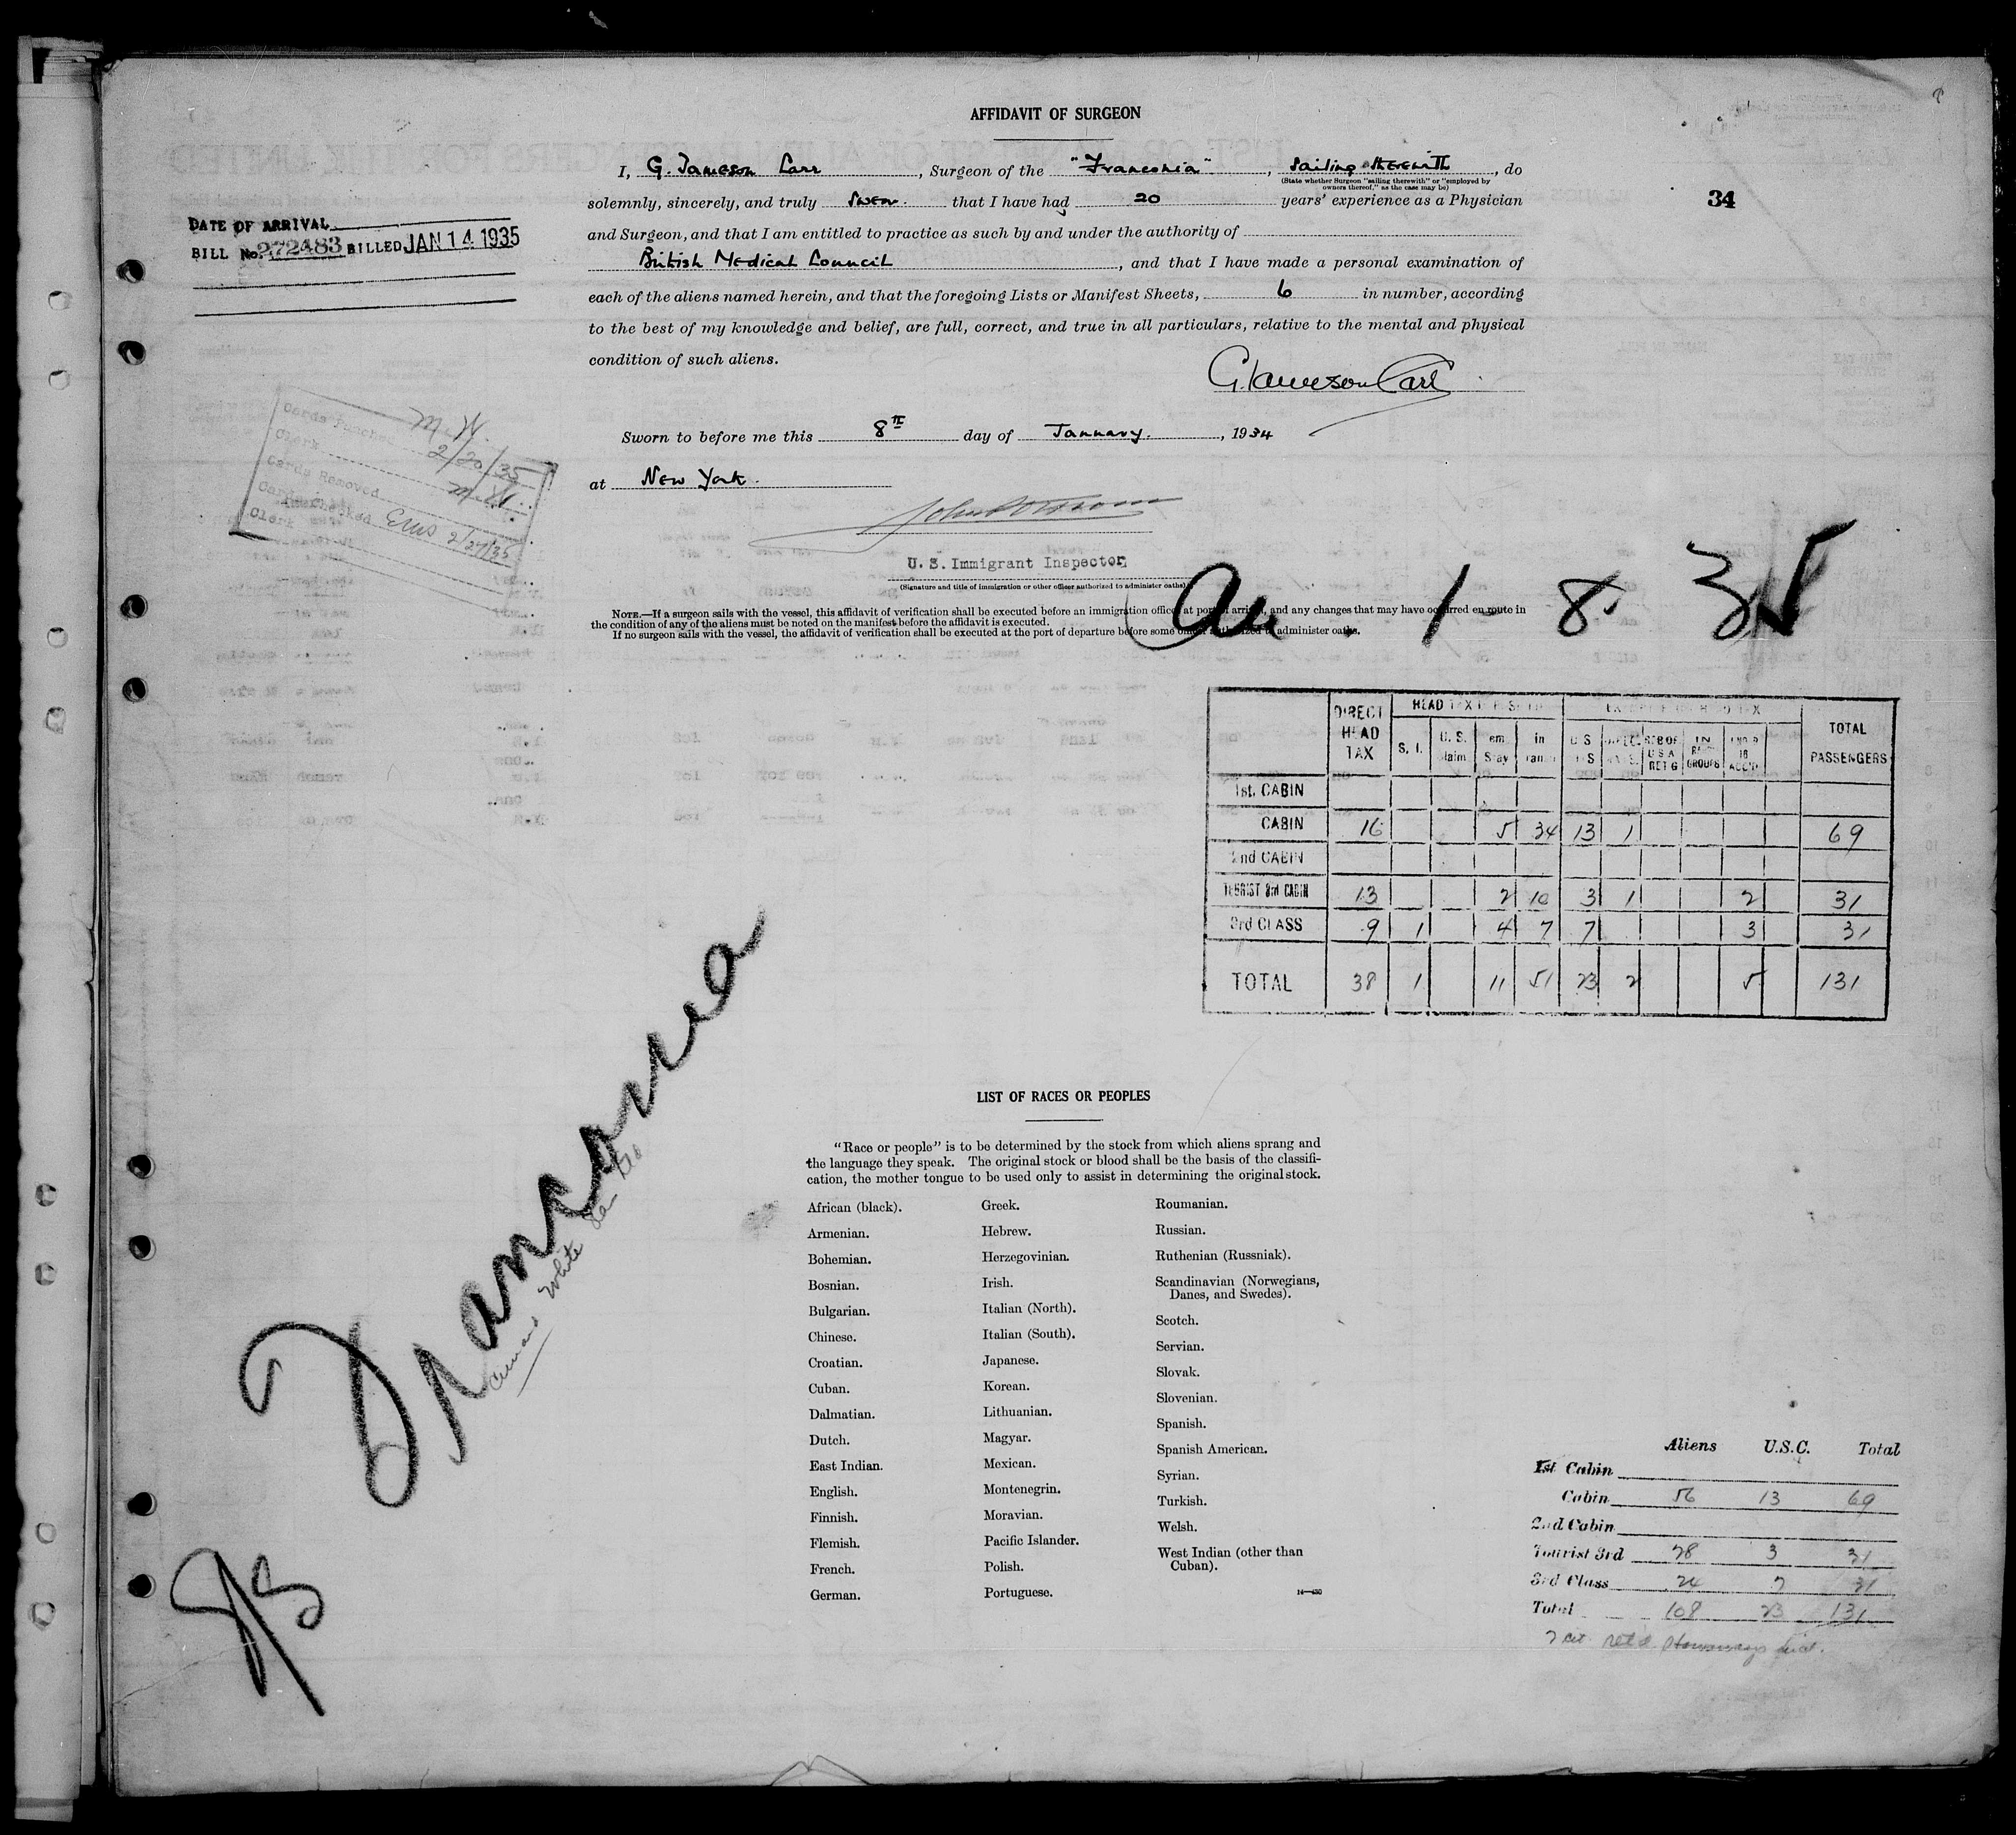 AFFIDAVIT OF SURGEON
I, G. Jameson Carr, Surgeon of the "Franconia", sailing therewith, do
(State whether Surgeon "sailing therewith" or "employed by
owners thereof," as the case may be)
34
solemnly, sincerely, and truly swear. that I have had 20 years' experience as a Physician
and Surgeon, and that I am entitled to practice as such by and under the authority of
British Medical Council, and that I have made a personal examination of
each of the aliens named herein, and that the foregoing Lists or Manifest Sheets, 6 in number, according
to the best of my knowledge and belief, are full, correct, and true in all particulars, relative to the mental and physical
condition of such aliens.
G. Jameson Carr
DATE OF ARRIVAL
BILL No. 272483 BILLED JAN 14 1935
Sworn to before me this 8th day of January., 1934
at New York.
U. S. Immigrant Inspector
(Signature and title of immigration or other officer authorized to administer oaths)
Cards Punched
M. W.
Clerk 2/20/35
Cards Removed M. W.
Cards Checked EMS
Clerk 2/27/35
NOTE.—If a surgeon sails with the vessel, this affidavit of verification shall be executed before an immigration officer at port of arrival, and any changes that may have occurred en route in
the condition of any of the aliens must be noted on the manifest before the affidavit is executed.
If no surgeon sails with the vessel, the affidavit of verification shall be executed at the port of departure before some officer authorized to administer oaths.
1 8 35
DIRECT HEAD TAX HEAD TAX TOTAL PASSENGERS
S. I. U. S. Claim Stay in U S REB OF U S A RET G IN GROUPS
1st. CABIN
CABIN 16 5 34 13 1 69
2nd CABIN
TOURIST 3rd CABIN 13 2 10 3 1 2 31
3rd CLASS 9 1 4 7 7 3 31
TOTAL 38 1 11 51 23 2 5 131
Franconia
White
LIST OF RACES OR PEOPLES
"Race or people" is to be determined by the stock from which aliens sprang and
the language they speak. The original stock or blood shall be the basis of the classifi-
cation, the mother tongue to be used only to assist in determining the original stock.
African (black).
Armenian.
Bohemian.
Bosnian.
Bulgarian.
Chinese.
Croatian.
Cuban.
Dalmatian.
Dutch.
East Indian.
English.
Finnish.
Flemish.
French.
German.
Greek.
Hebrew.
Herzegovinian.
Irish.
Italian (North).
Italian (South).
Japanese.
Korean.
Lithuanian.
Magyar.
Mexican.
Montenegrin.
Moravian.
Pacific Islander.
Polish.
Portuguese.
Roumanian.
Russian.
Ruthenian (Russniak).
Scandinavian (Norwegians,
Danes, and Swedes).
Scotch.
Servian.
Slovak.
Slovenian.
Spanish.
Spanish American.
Syrian.
Turkish.
Welsh.
West Indian (other than
Cuban).
Aliens U.S.C. Total
1st Cabin
Cabin 56 13 69
2nd Cabin
Tourist 3rd 28 3 31
3rd Class 24 7 31
Total 108 23 131